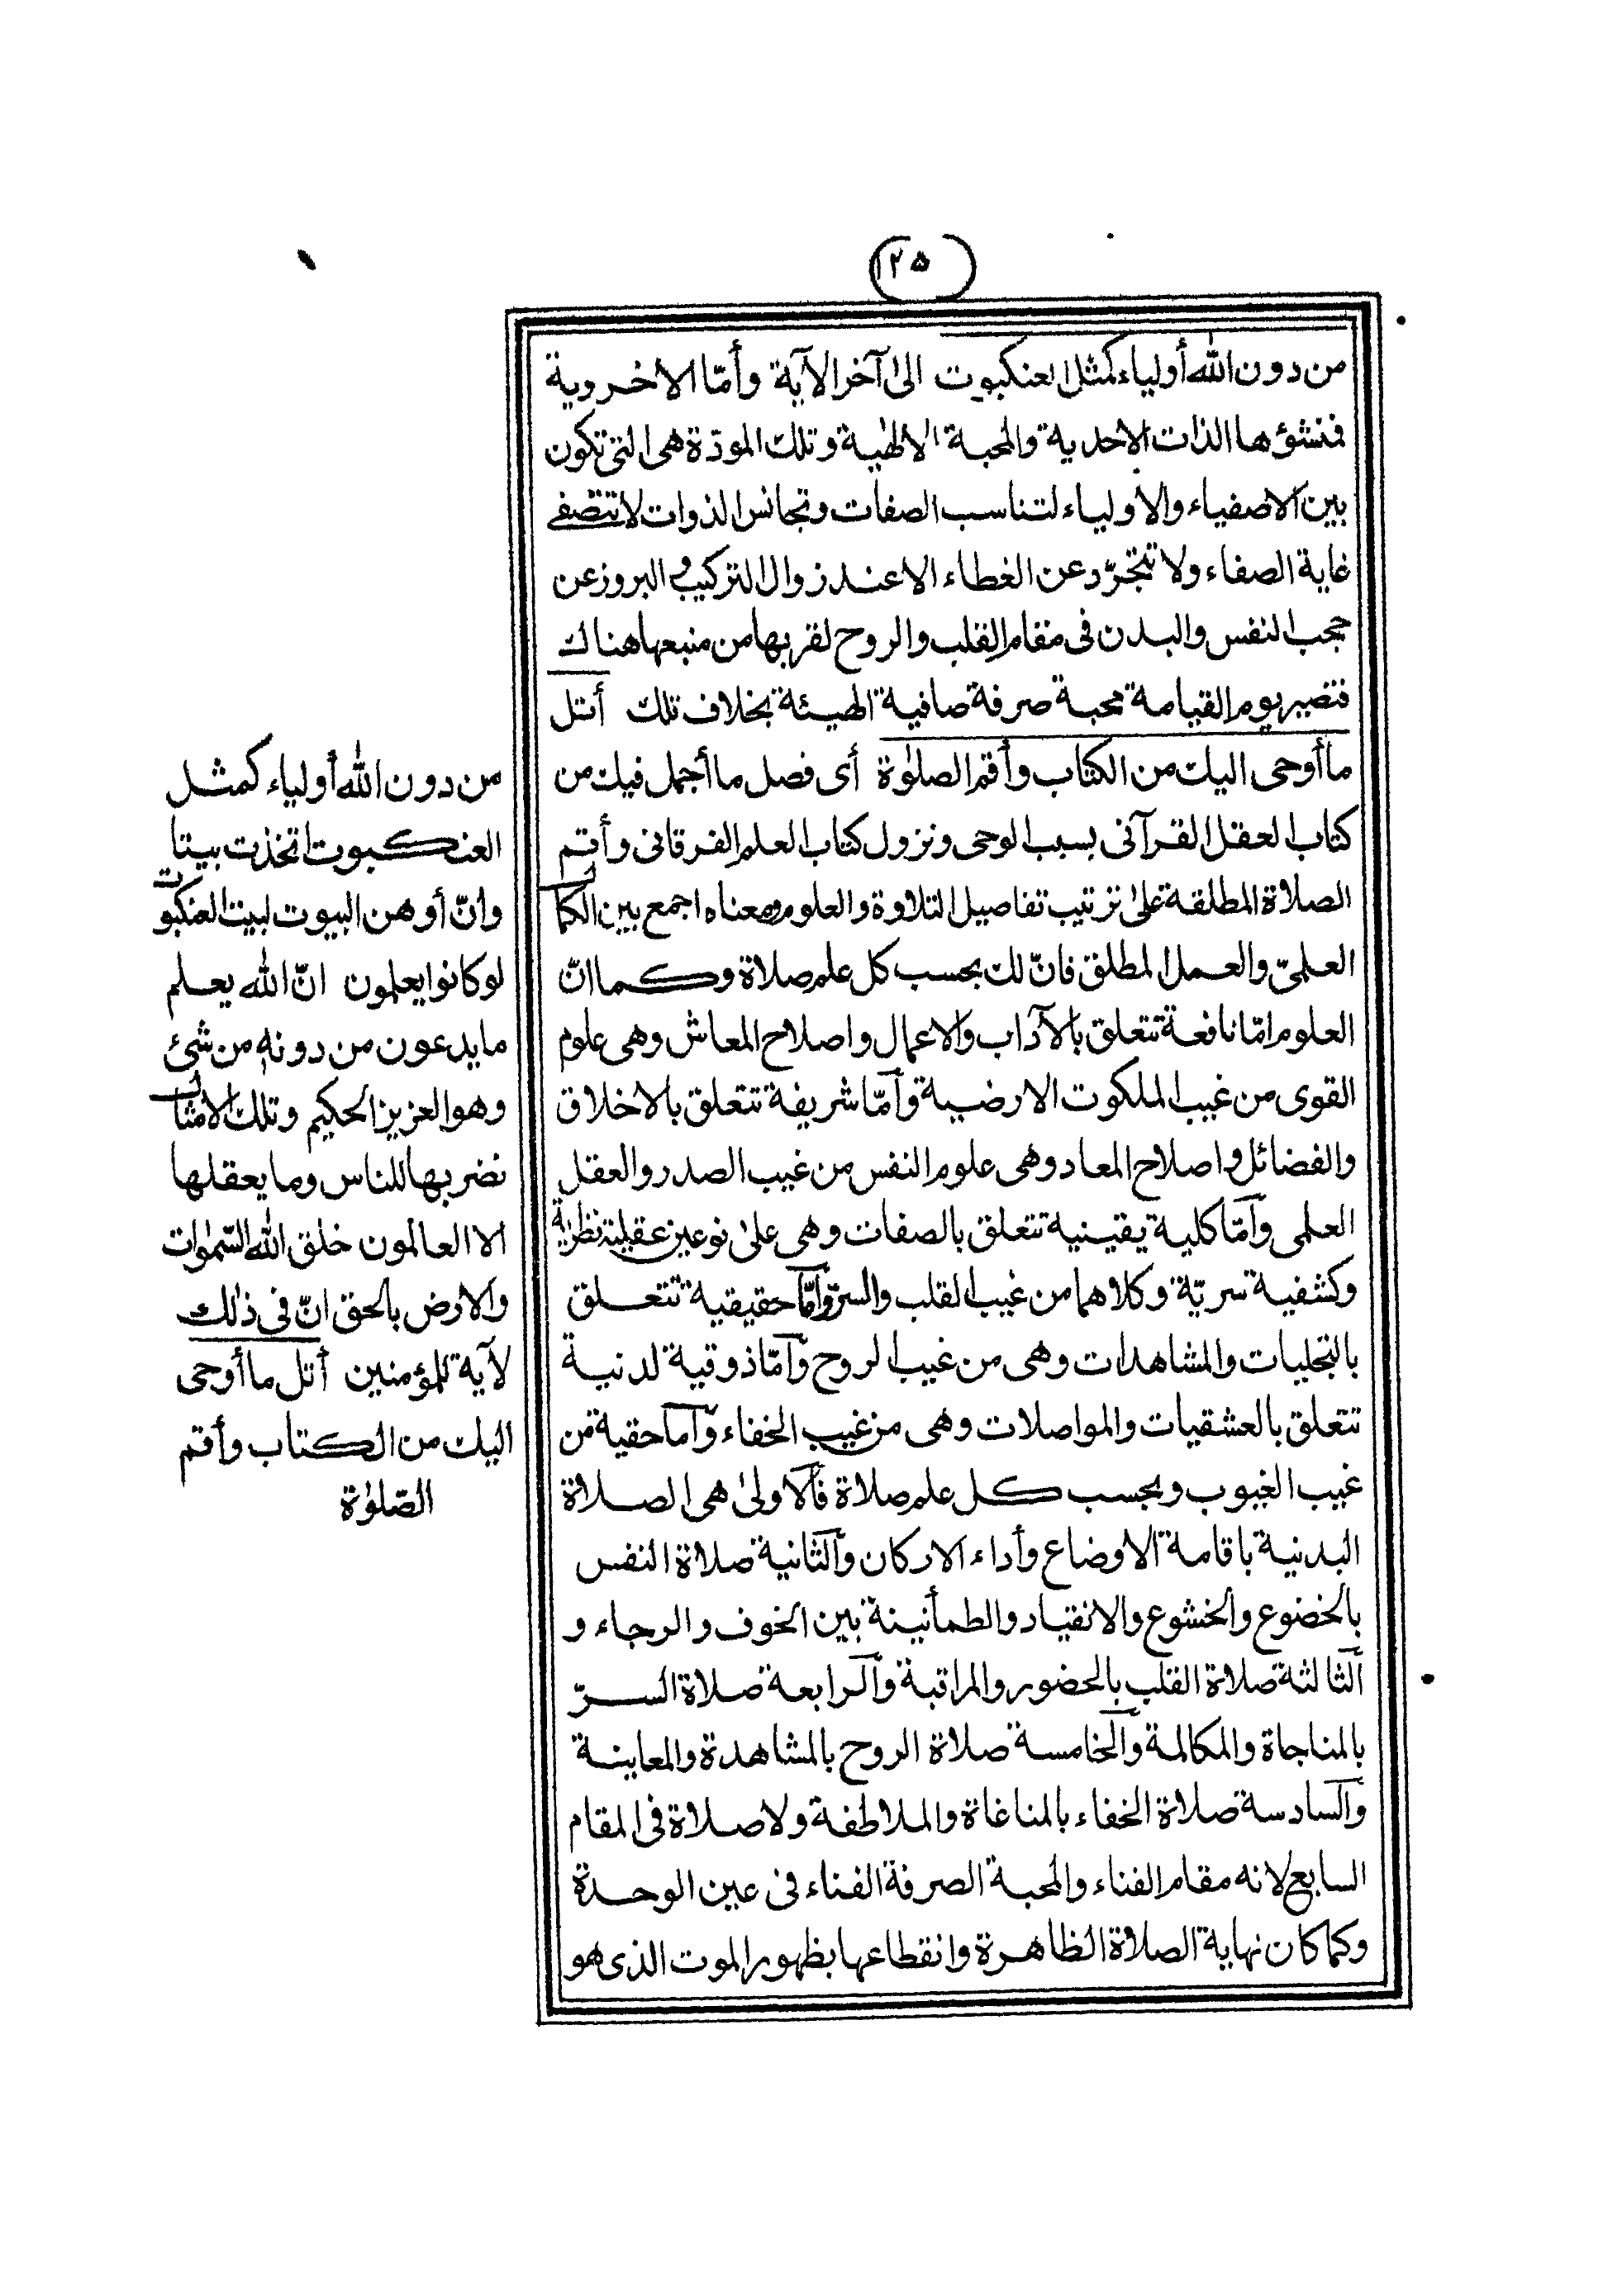 (١٢٥)
من دون الله أولياء كمثل العنكبوت الى آخر الآية وأمّا الاخروية
فمنشؤها الذات الاحدية والمحبة الالهية وتلك المودّة هى التى تكون
بين الاصفياء والاولياء لتناسب الصفات وتجانس الذوات لا تتصفى
غاية الصفاء ولا تتجرّد عن الغطاء الا عند زوال التركيب و البروز عن
حجب النفس والبدن فى مقام القلب والروح لقربها من منبعها هناك
فتصير يوم القيامة محبة صرفة صافية الهيئة بخلاف تلك أتل
ما أوحى اليك من الكتاب وأقم الصلوٰة أى فصل ما أجمل فيك من
كتاب العقل القرآنى بسبب الوحى ونزول كتاب العلم الفرقانى وأقم
الصلاة المطلقة علىٰ ترتيب تفاصيل التلاوة والعلوم ومعناه اجمع بين الكمال
العلمىّ والعمل المطلق فانّ لك بحسب كل علم صلاة وكما انّ
العلوم امّا نافعة تتعلق بالآداب والاعمال واصلاح المعاش وهى علوم
القوى من غيب الملكوت الارضية وأمّا شريفة تتعلق بالاخلاق
والفضائل و اصلاح المعاد وهى علوم النفس من غيب الصدر والعقل
العلمى وأمّا كلية يقينية تتعلق بالصفات وهى علىٰ نوعين عقلية نظرية
وكشفية سريّة وكلاهما من غيب القلب والسرّ وأمّا حقيقية تتعلق
بالتجليات والمشاهدات وهى من غيب الروح وأمّا ذوقية لدنية
تتعلق بالعشقيات والمواصلات وهى من غيب الخفاء وأما حقية من
غيب الغيوب وبحسب كل علم صلاة فالاولىٰ هى الصلاة
البدنية باقامة الاوضاع وأداء الاركان والثانية صلاة النفس
بالخضوع والخشوع والانقياد والطمأنينة بين الخوف والرجاء و
الثالثة صلاة القلب بالحضور والمراقبة والرابعة صلاة السرّ
بالمناجاة والمكالمة والخامسة صلاة الروح بالمشاهدة والمعاينة
والسادسة صلاة الخفاء بالمناغاة والملاطفة ولا صلاة فى المقام
السابع لانه مقام الفناء والمحبة الصرفة الفناء فى عين الوحدة
وكما كان نهاية الصلاة الظاهرة وانقطاعها بظهور الموت الذى هو
من دون الله أولياء كمثل
العنكبوت اتخذت بيتا
وانّ أوهن البيوت لبيت العنكبوت
لو كانوا يعلمون انّ الله يعلم
ما يدعون من دونه من شئ
وهو العزيز الحكيم وتلك الامثال
نضربها للناس وما يعقلها
الا العالمون خلق الله السّمٰوات
والارض بالحق انّ فى ذٰلك
لآية للمؤمنين أتل ما أوحى
اليك من الكتاب وأقم
الصّلوٰة